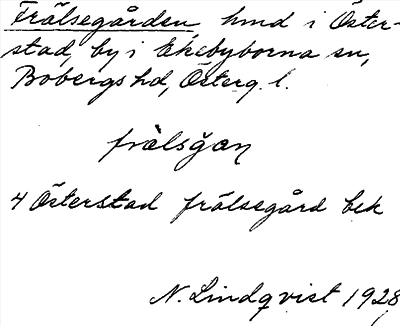 Frälsegården, hmd i Öster-
stad, by i Ekebyborna sn,
Bobergs hd, Österg. l.
frälsgan
4 Österstad frälsegård bek
N. Lindqvist 1928